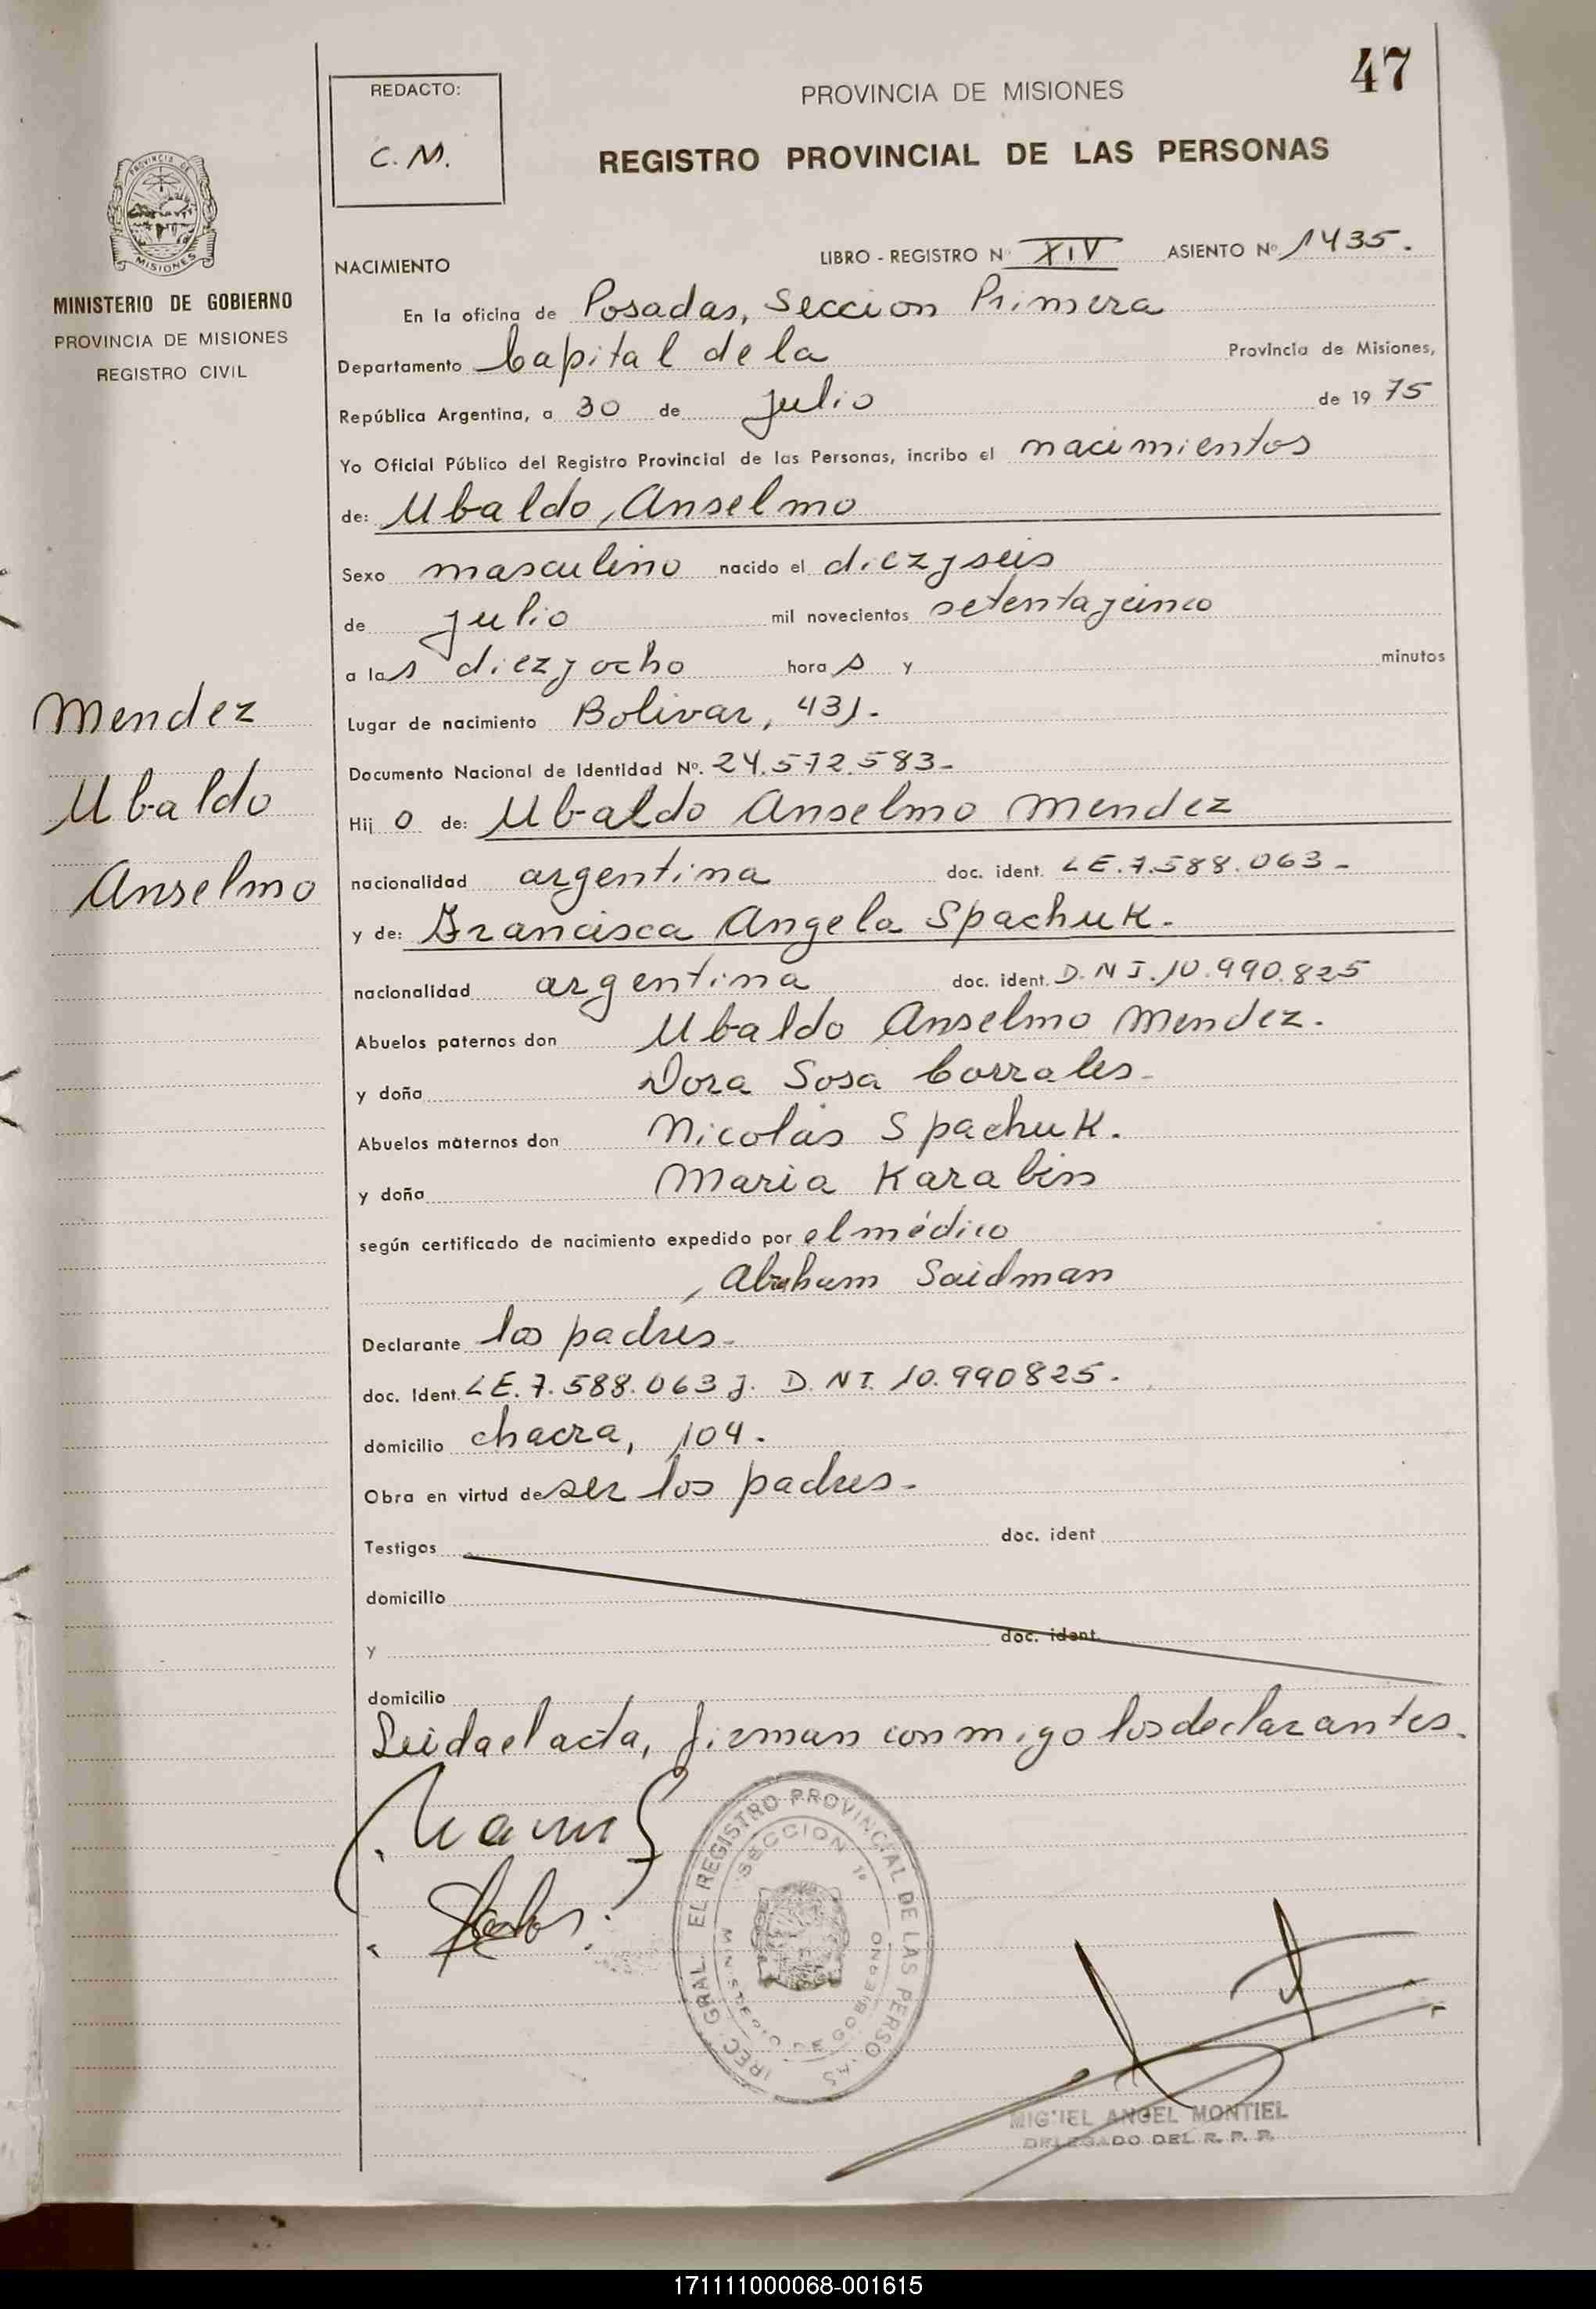 47
REDACTO:
C. M.
PROVINCIA DE MISIONES
REGISTRO PROVINCIAL DE LAS PERSONAS
PROVINCIA DE
MISIONES
MINISTERIO DE GOBIERNO
PROVINCIA DE MISIONES
REGISTRO CIVIL
NACIMIENTO LIBRO - REGISTRO Nº XIV ASIENTO Nº 1435.
En la oficina de Posadas, Seccion Primera
Departamento Capital de la Provincia de Misiones,
República Argentina, a 30 de Julio de 1975
Yo Oficial Público del Registro Provincial de las Personas, incribo el nacimientos
de: Ubaldo, Anselmo
Sexo masculino nacido el diezyseis
de Julio mil novecientos setentaycinco
a las diezyocho horas y minutos
Mendez
Ubaldo
Anselmo
Lugar de nacimiento Bolivar, 431.
Documento Nacional de Identidad Nº. 24.572.583-
Hijo de: Ubaldo Anselmo Mendez
nacionalidad argentina doc. ident. LE.7.588.063-
y de: Francisca Angela Spachuk.
nacionalidad argentina doc. ident. D.N I.10.990.825
Abuelos paternos don Ubaldo Anselmo Mendez.
y doña Dora Sosa Corrales-
Abuelos maternos don Nicolás Spachuk.
y doña Maria Karabin
según certificado de nacimiento expedido por el médico
, Abraham Saidman
Declarante los padres-
doc. Ident. LE.7.588.063 y. D. N I. 10.990825.
domicilio chacra, 104.
Obra en virtud de ser los padres-
Testigos doc. ident
domicilio
y doc. ident.
domicilio
Leida el acta, firman conmigo los declarantes.
IREC. GRAL. EL REGISTRO PROVINCIAL DE LAS PERSO.AS
SECCION 1º
MINISTERIO DE GOBIERNO
MIGUEL ANGEL MONTIEL
DELEGADO DEL R. P. P.
171111000068-001615